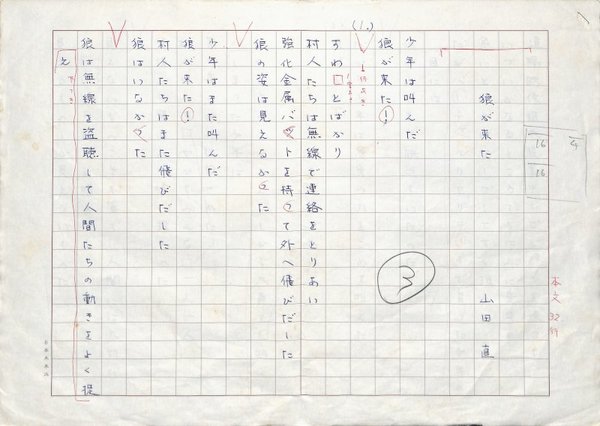 狼が来た
山田 直
少年は叫んだ
狼が来た!
すわ□とばかり
村人たちは無線で連絡をとりあい
強化金属バットを持って外へ飛びだした
狼の姿は見えなかった
少年はまた叫んだ
狼が来た!
村人たちはまた飛びだした
狼はいなかった
狼は無線を盗聴して人間たちの動きをよく捉
え
(1.)
3
本文32行
16
4
16